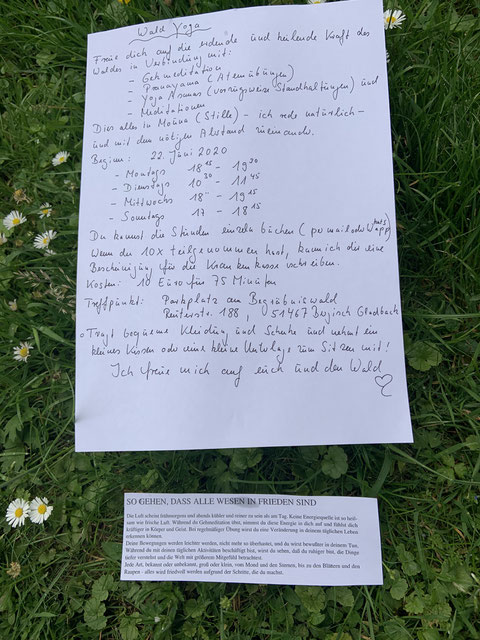 Wald Yoga
Freue dich auf die erdende und heilende Kraft des
Waldes in Verbindung mit:
- Gehmeditation
- Pranayama (Atemübungen)
- Yoga Asanas (vorzugsweise Standhaltungen) und
- Meditationen
Dies alles in Mouna (Stille) - ich rede natürlich -
und mit dem nötigen Abstand zueinander.
Beginn: 22. Juni 2020
- Montags 18 15 - 19 30
- Dienstags 10 30 - 11 45
- Mittwochs 18 - 19 15
- Sonntags 17 - 18 15
Du kannst die Stunden einzeln buchen (per mail oder Whats app)
Wenn du 10x teilgenommen hast, kann ich dir eine
Bescheinigung für die Krankenkasse schreiben.
Kosten: 10 Euro für 75 Minuten
Treffpunkt: Parkplatz am Begräbniswald
Reuterstr. 188, 51467 Bergisch Gladbach
Tragt bequeme Kleidung und Schuhe und nehmt ein
kleines Kissen oder eine kleine Unterlage zum Sitzen mit!
Ich freue mich auf euch und den Wald
SO GEHEN, DASS ALLE WESEN IN FRIEDEN SIND
Die Luft scheint frühmorgens und abends kühler und reiner zu sein als am Tag. Keine Energiequelle ist so heil-
sam wie frische Luft. Während du Gehmeditation übst, nimmst du diese Energie in dich auf und fühlst dich
kräftiger in Körper und Geist. Bei regelmäßiger Übung wirst du eine Veränderung in deinem täglichen Leben
erkennen können.
Deine Bewegungen werden leichter werden, nicht mehr so überhastet, und du wirst bewußter in deinem Tun.
Während du mit deinen täglichen Aktivitäten beschäftigt bist, wirst du sehen, daß du ruhiger bist, die Dinge
tiefer verstehst und die Welt mit größerem Mitgefühl betrachtest.
Jede Art, bekannt oder unbekannt, groß oder klein, vom Mond und den Sternen, bis zu den Blättern und den
Raupen - alles wird friedvoll werden aufgrund der Schritte, die du machst.